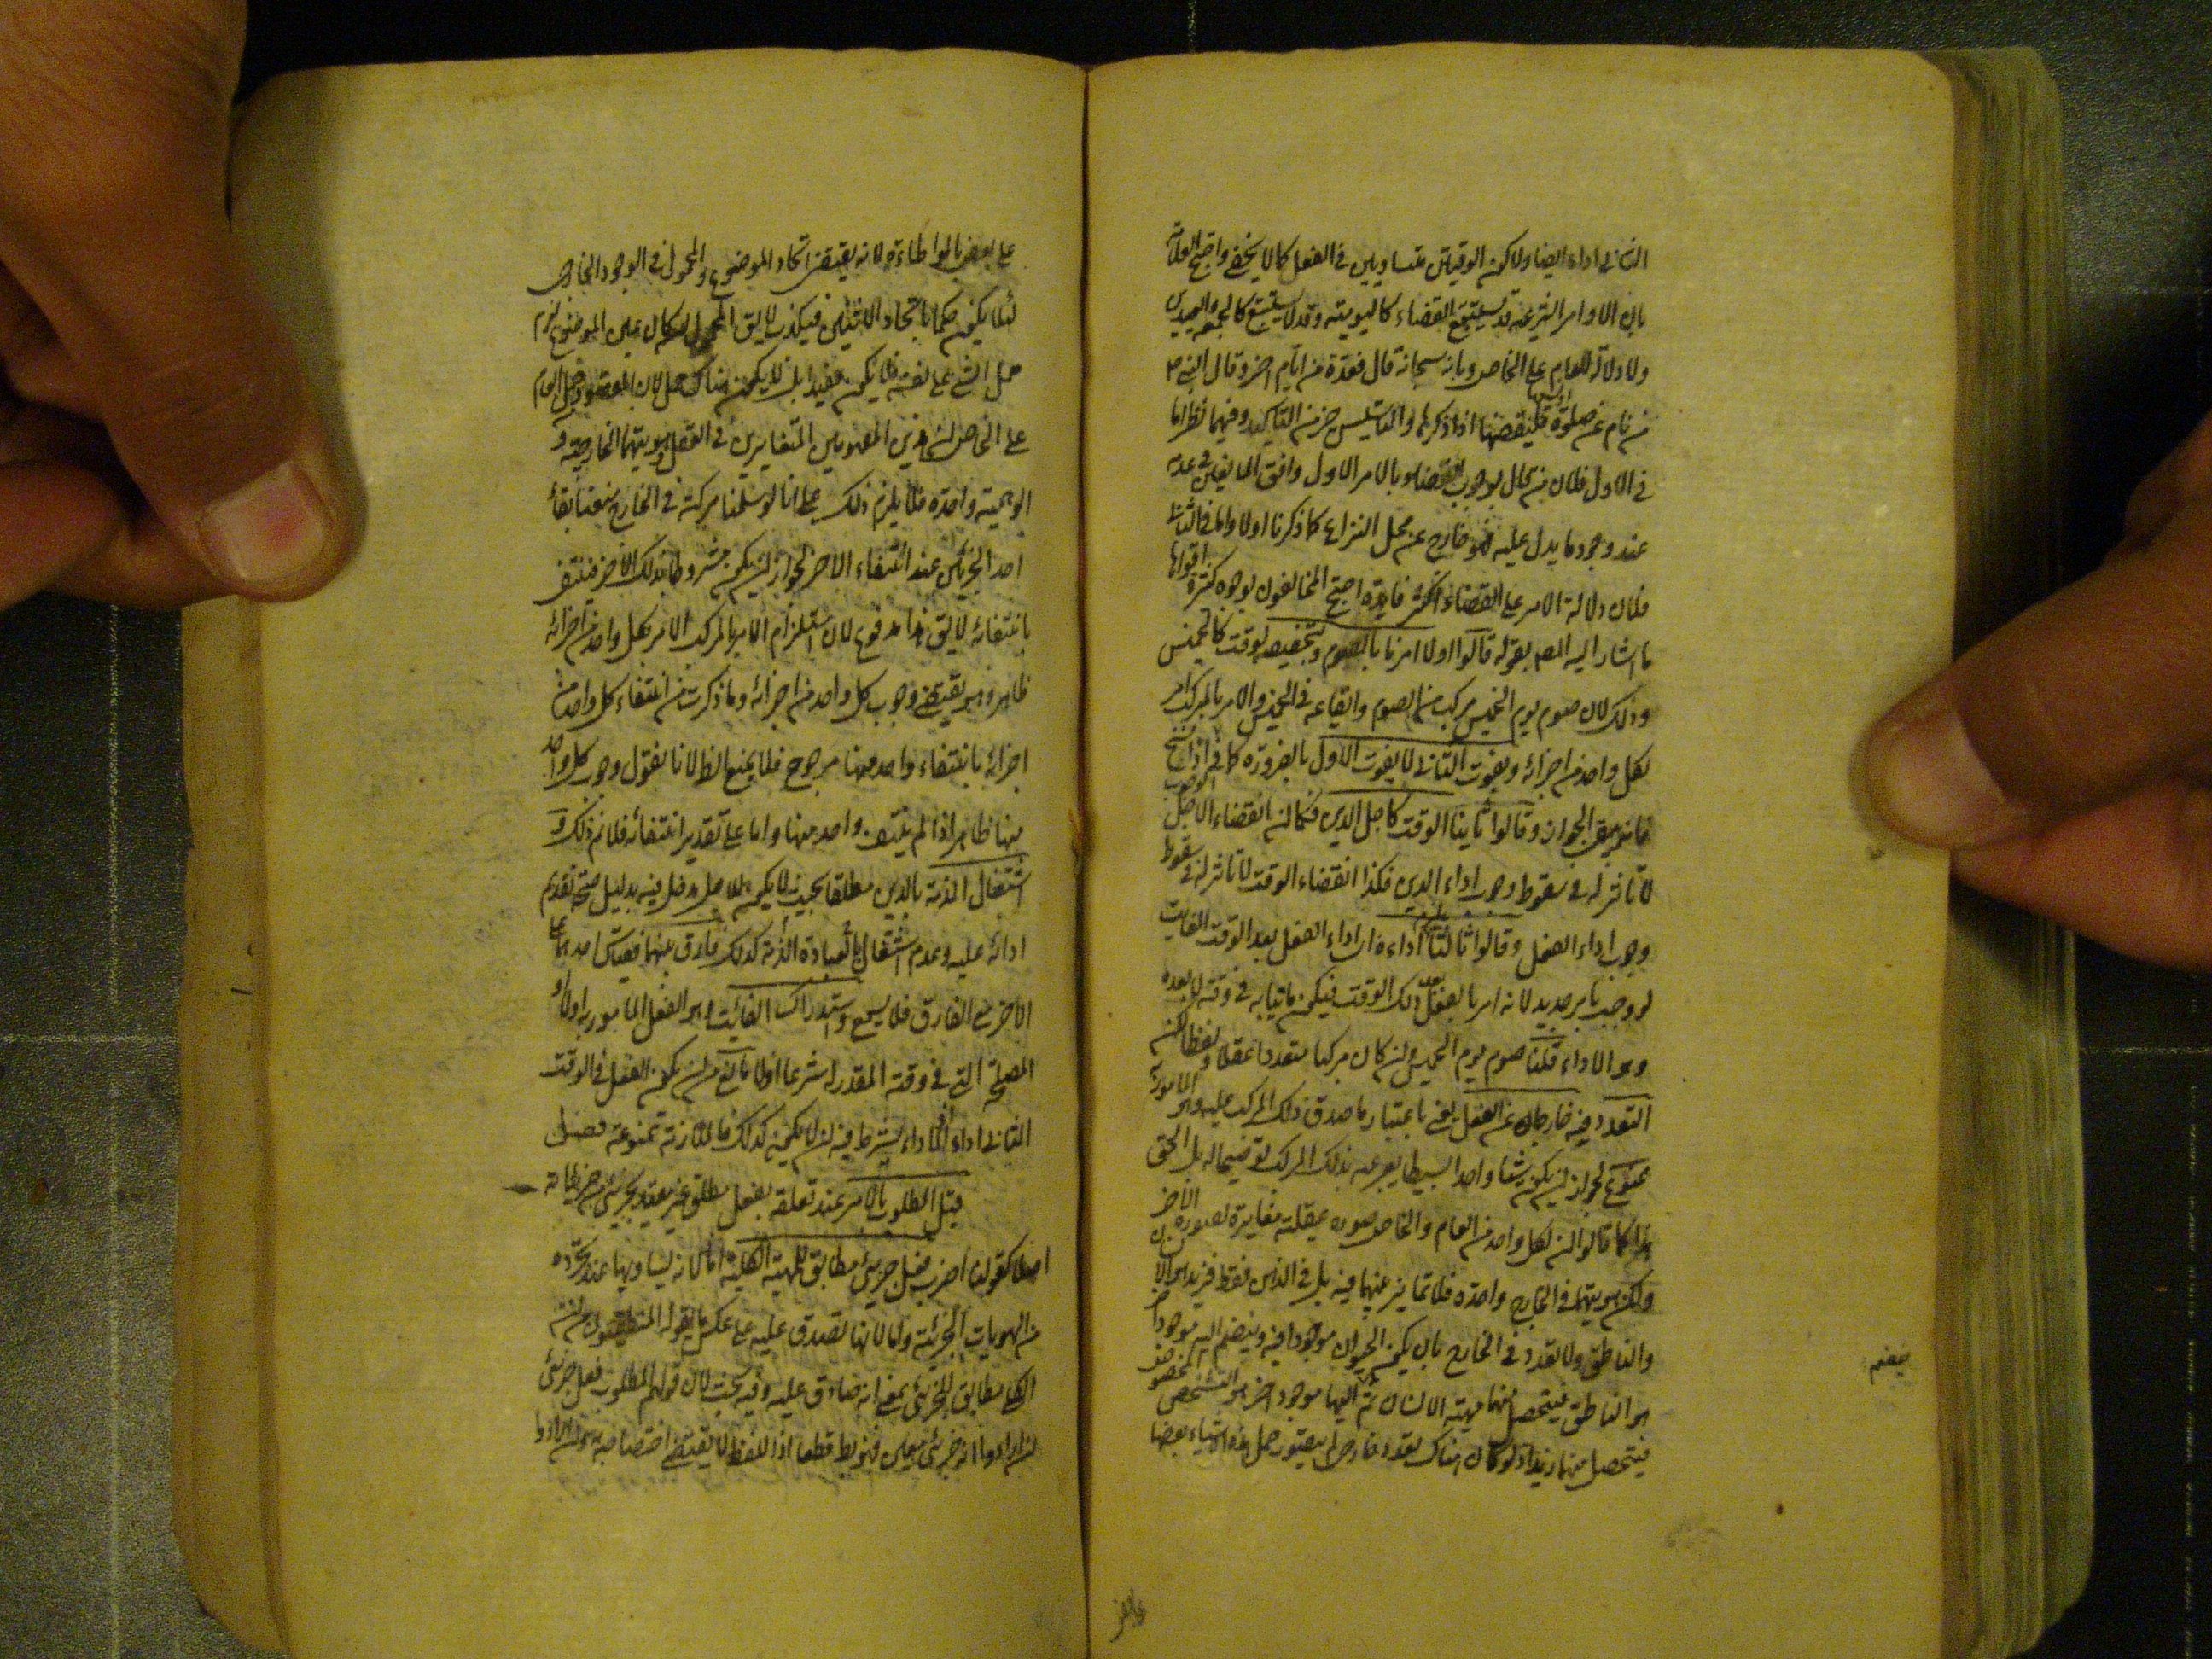 الثانى اداء ايضا ولا كون الوقتين متساويين فى الفعل كما لا يخفى واحتج العلامة
بان الاوامر الشرعية قد يستتبع القضاء كاليومية وقد لا يستتبع كالجمعة والعيدين
ولا دلالة للعام على الخاص وبانه سبحانه قال فعدة من ايام اخر وقال النبى ص
من نام عن صلوة فليقضها اذا ذكرها والتاسيس خير من التاكيد وفيهما نظر اما
فى الاول فلان من قال بوجوب القضاء بالامر الاول وافق المانعين فى عدمه
عند وجود ما يدل عليه فهو خارج عن محل النزاع كما ذكرنا اولا واما فى الثانى
فلان دلالة الامر على القضاء اكثر فايدة احتج المخالفون بوجوه كثيرة اقواها
ما اشار اليه المص بقوله قالوا اولا امرنا بالصوم وتخصيصه بوقت كالخميس
وذلك لان صوم يوم الخميس مركب من الصوم وايقاعه فى الخميس والامر بالمركب امر
بكل واحد من اجزائه وبفوت الثانى لا يفوت الاول بالضرورة كما فى اذا نسخ الوجوب
فانه يبقى الجواز وقالوا ثانيا الوقت كاجل الدين فكما ان انقضاء الاجل
لا تاثير له فى سقوط وجوب اداء الدين فكذا انقضاء الوقت لا تاثير له فى سقوط
وجوب اداء الفعل وقالوا ثالثا اداءه اى اداء الفعل بعد الوقت الفايت
لو وجب بامر جديد لانه امر بالفعل بعد ذلك الوقت فيكون ماتيا به فى وقته لا بعده
وهو الاداء قلنا صوم يوم الخميس وان كان مركبا متعددا عقلا ولفظا لكن
التعدد فيه خارجا عن الفعل يعنى باعتبار ما صدق ذلك المركب عليه وهو المامور به
ممنوع لجواز ان يكون شيئا واحدا بسيطا يعبر عنه بذلك المركب توضيحا له بل الحق
هذا كما قالوا ان لكل واحد من العام والخاص صورة عقلية مغايرة لصورة الاخر
ولكن هويتهما فى الخارج واحدة فلا تمايز بينهما فيه بل فى الذهن فقط فزيد هو الانسان
والناطق ولا تعدد فى الخارج بان يكون الحيوان موجودا فيه وينضم اليه موجود اخر
هو الناطق فيتحصل منهما مهية الانسان ثم اليها موجود اخر هو التشخص المخصوص
فيتحصل منها زيد اذ لو كان هناك تعدد خارجى لم يتصور حمل هذه الاشياء بعضها
ينضم
على بعض بالمواطاءة لانه يقتضى اتحاد الموضوع والمحمول فى الوجود الخارجى
لئلا يكون حكما باتحاد الاثنين فيكذب لا يق المحمول لو كان عين الموضوع لزم
حمل الشئ على نفسه فلا يكون مفيدا بل لا يكون هناك حمل لان المقصود حمل العام
على الخاص ان هذين المفهومين المتغايرين فى العقل هويتهما الخارجية و
الوهمية واحدة فلا يلزم ذلك على انا لو سلمنا تركبه فى الخارج منعنا بقاء
احد الجزئين عند انتفاء الاخر لجواز ان يكون مشروطا بذلك الاخر فينتفى
بانتفائه لا يق هذا مدفوع لان استلزام الامر بالمركب الامر بكل واحد من اجزائه
ظاهر وهو يقتضى وجوب كل واحد من اجزائه وما ذكرت من انتفاء كل واحد من
اجزائه بانتفاء واحد منها مرجوح فلا يمنع الظ لانا نقول وجوب كل واحد
منها ظاهرا اذا لم ينتف واحد منها واما على تقدير انتفائه فلا نم ذلك و
اشتغال الذمة بالدين مطلقا بحيث لا يكون للاجل مدخل فيه بدليل صحة تقديم
ادائه عليه وعدم اشتغال بالعبادة الذمة كذلك فارق بينهما فقياس احدهما على
الاخر مع الفارق فلا يسمع واستدراك الفائت وهو الفعل المامور به اولا او
المصلحة التى فى وقته المقدر له شرعا اولا مانع من ان يكون الفعل فى الوقت
الثانى اداء اذ الاداء يشترط فيه ان لا يكون كذلك فالملازمة ممنوعة فصل
قيل المطلوب بالامر عند تعلقه بفعل مطلق غير مقيد بجزئى من جزئياته
اصلا كقولنا اضرب فعل جزئى مطابق للمهية الكلية اما لانه يساويها عند تجرده
من الهويات الجزئية واما لانها تصدق عليه على عكس ما يقوله المنطقيون من ان
الكلى مطابق للجزئى بمعنى انه صادق عليه وفيه بحث لان قولهم المطلوب فعل جزئى
ان ارادوا انه جزئى معين فهو بط قطعا اذ اللفظ لا يقتضى اختصاصه به وان ارادوا